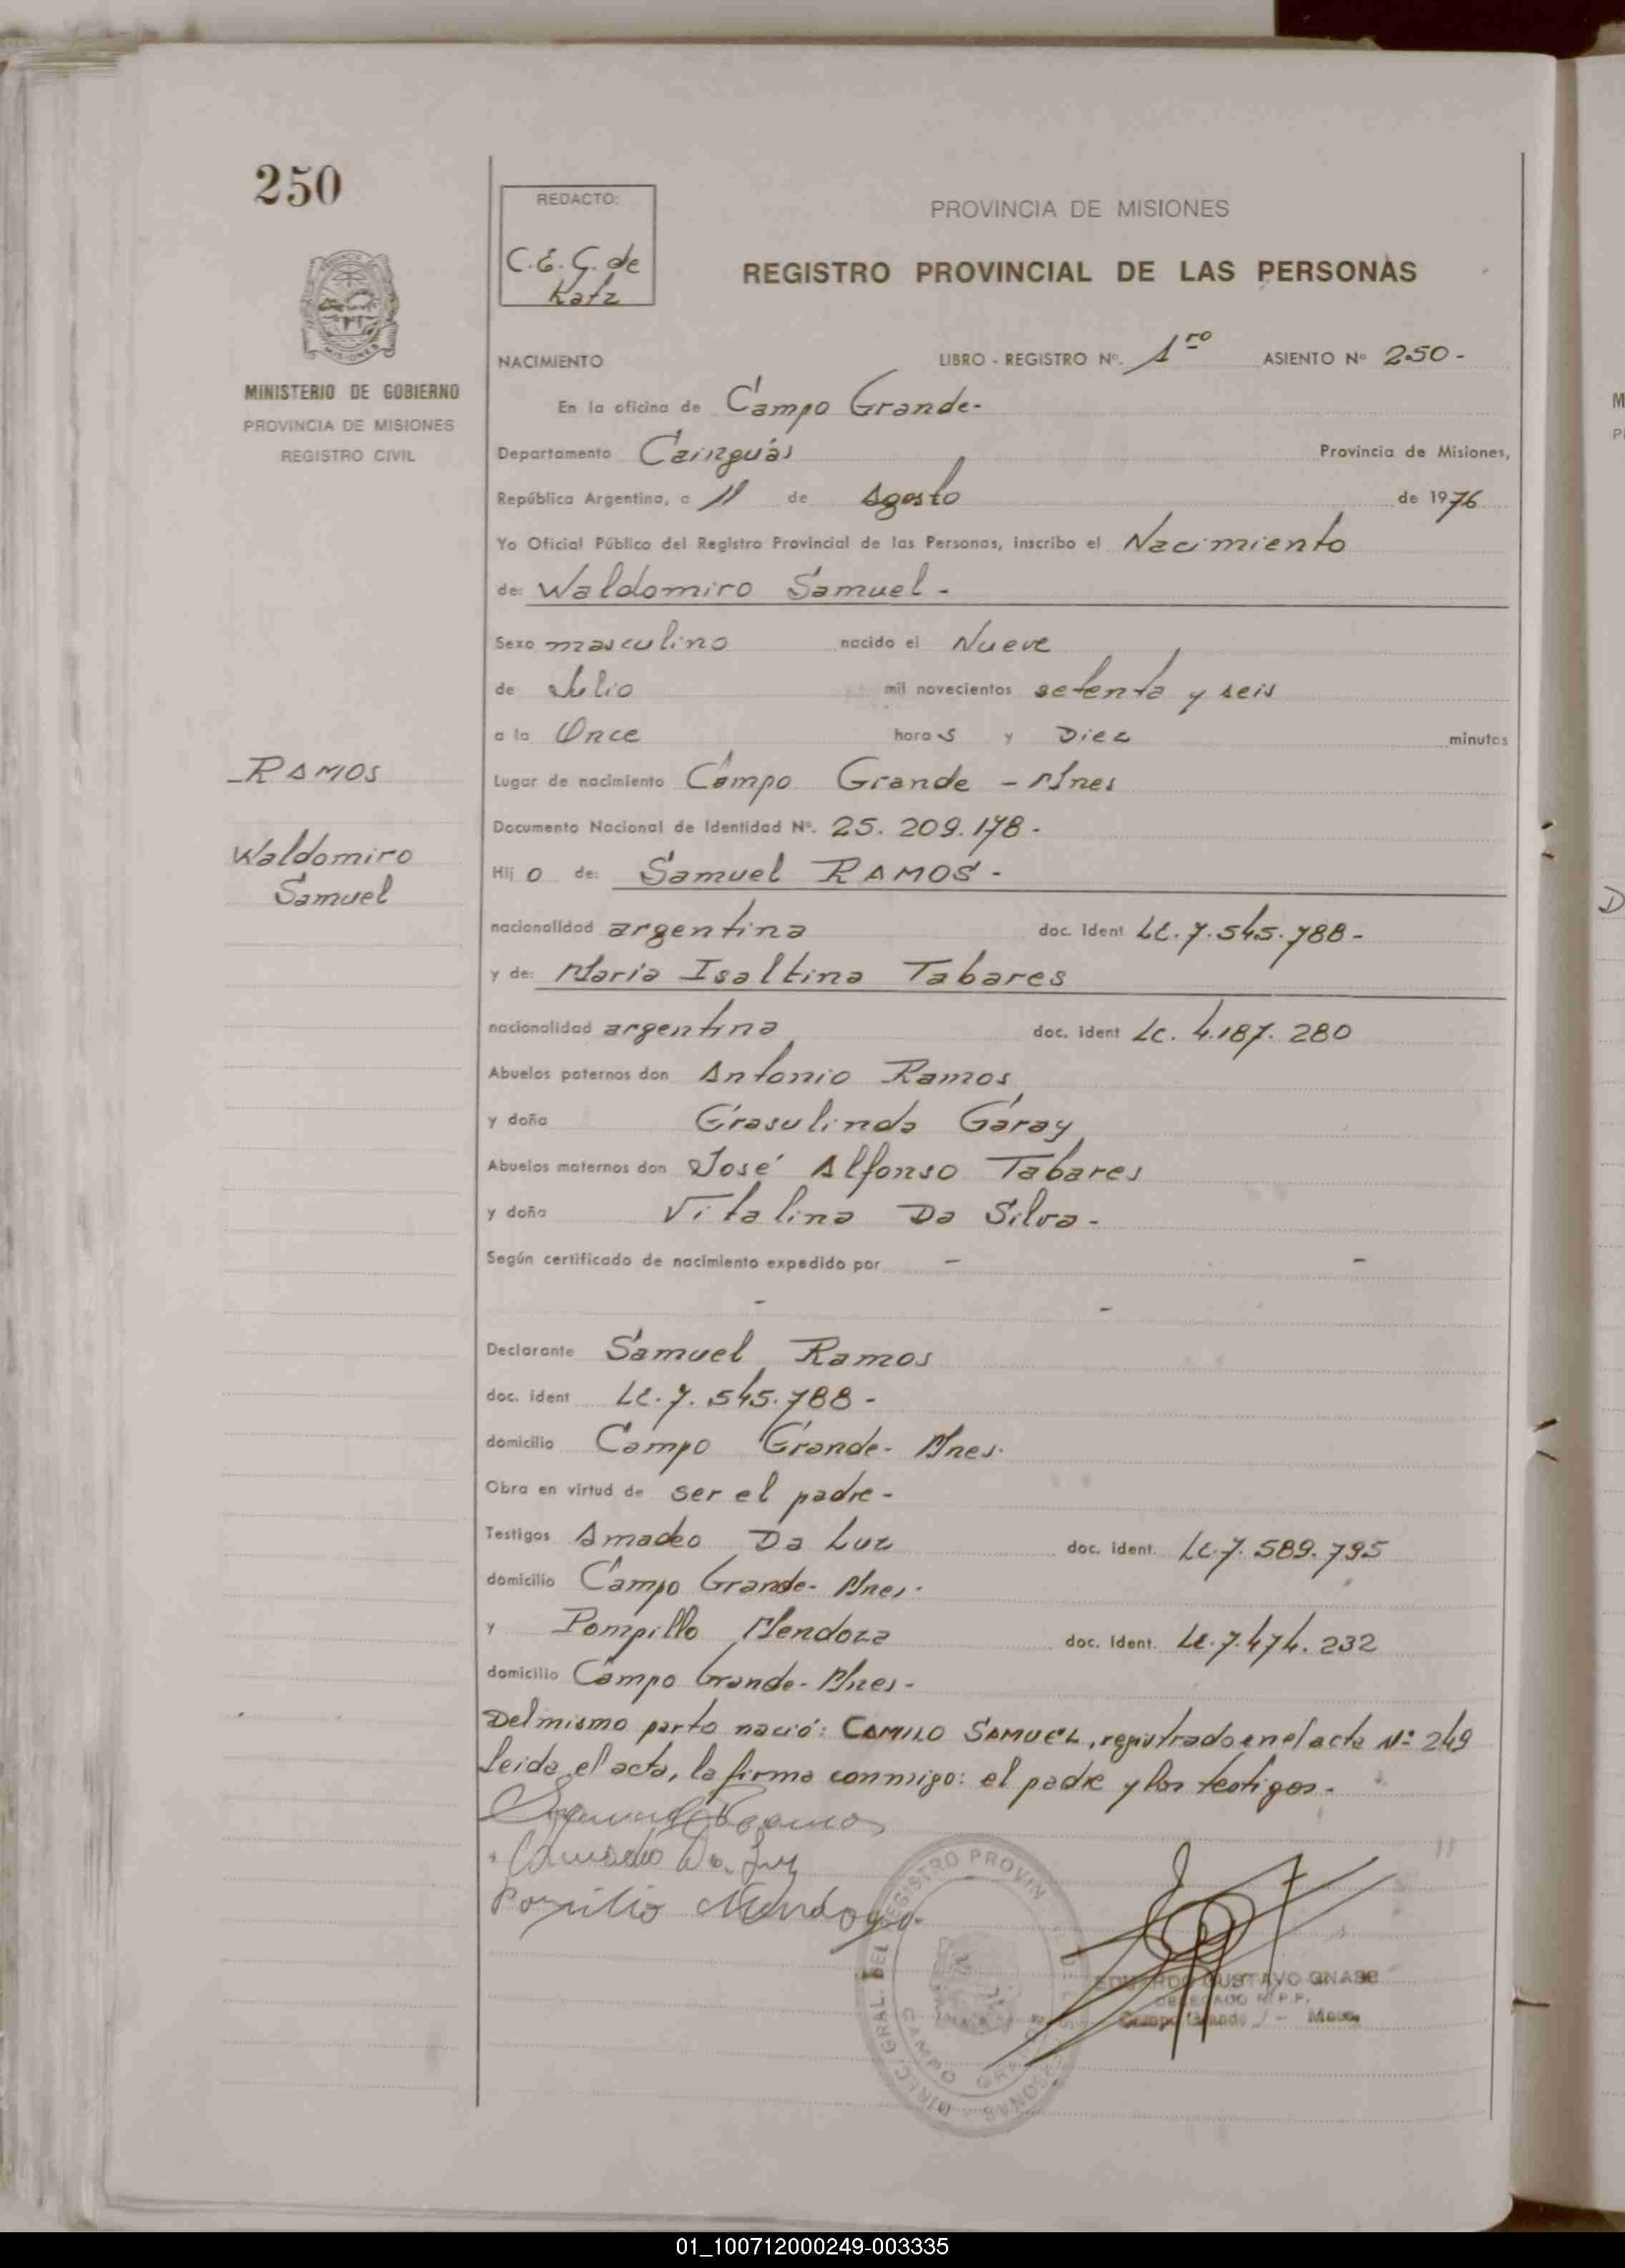 250
REDACTO:
C.E.G. de
Katz
PROVINCIA DE MISIONES
REGISTRO PROVINCIAL DE LAS PERSONAS
MISIONES
MINISTERIO DE GOBIERNO
PROVINCIA DE MISIONES
REGISTRO CIVIL
NACIMIENTO LIBRO - REGISTRO Nº. 1ro ASIENTO Nº 250 -
En la oficina de Campo Grande-
Departamento Cainguás Provincia de Misiones,
República Argentina, a 11 de Agosto de 1976
Yo Oficial Público del Registro Provincial de las Personas, inscribo el Nacimiento
de: Waldomiro Samuel -
Sexo masculino nacido el Nueve
de Julio mil novecientos setenta y seis
a la Once horas y Diez minutos
RAMOS
Waldomiro
Samuel
Lugar de nacimiento Campo Grande - Mnes
Documento Nacional de Identidad Nº. 25. 209. 178 -
Hijo de: Samuel RAMOS -
nacionalidad argentina doc. ident LE. 7. 545. 788 -
y de: Maria Isaltina Tabares
nacionalidad argentina doc. ident LC. 4.187. 280
Abuelos paternos don Antonio Ramos
y doña Grasulinda Garay
Abuelos maternos don José Alfonso Tabares
y doña Vitalina Da Silva -
Según certificado de nacimiento expedido por - -
- -
Declarante Samuel Ramos
doc. ident LE. 7. 545. 788 -
domicilio Campo Grande - Mnes.
Obra en virtud de ser el padre -
Testigos Amadeo Da Luz doc. ident. LE. 7. 589. 795
domicilio Campo Grande - Mnes.
y Pompillo Mendoza doc. ident. LE. 7. 474. 232
domicilio Campo Grande - Mnes -
Del mismo parto nació: CAMILO SAMUEL, registrado en el acta Nº 249
Leida el acta, la firma conmigo: el padre y los testigos -
Samuel Ramos
Amadeo Da Luz
Mendoza
DIREC. GRAL. DEL REGISTRO PROVIN
CAMPO GRANDE
EDUARDO GUSTAVO GNASS
DELEGADO R.P.P.
Campo Grande - Mnes.
01_100712000249-003335